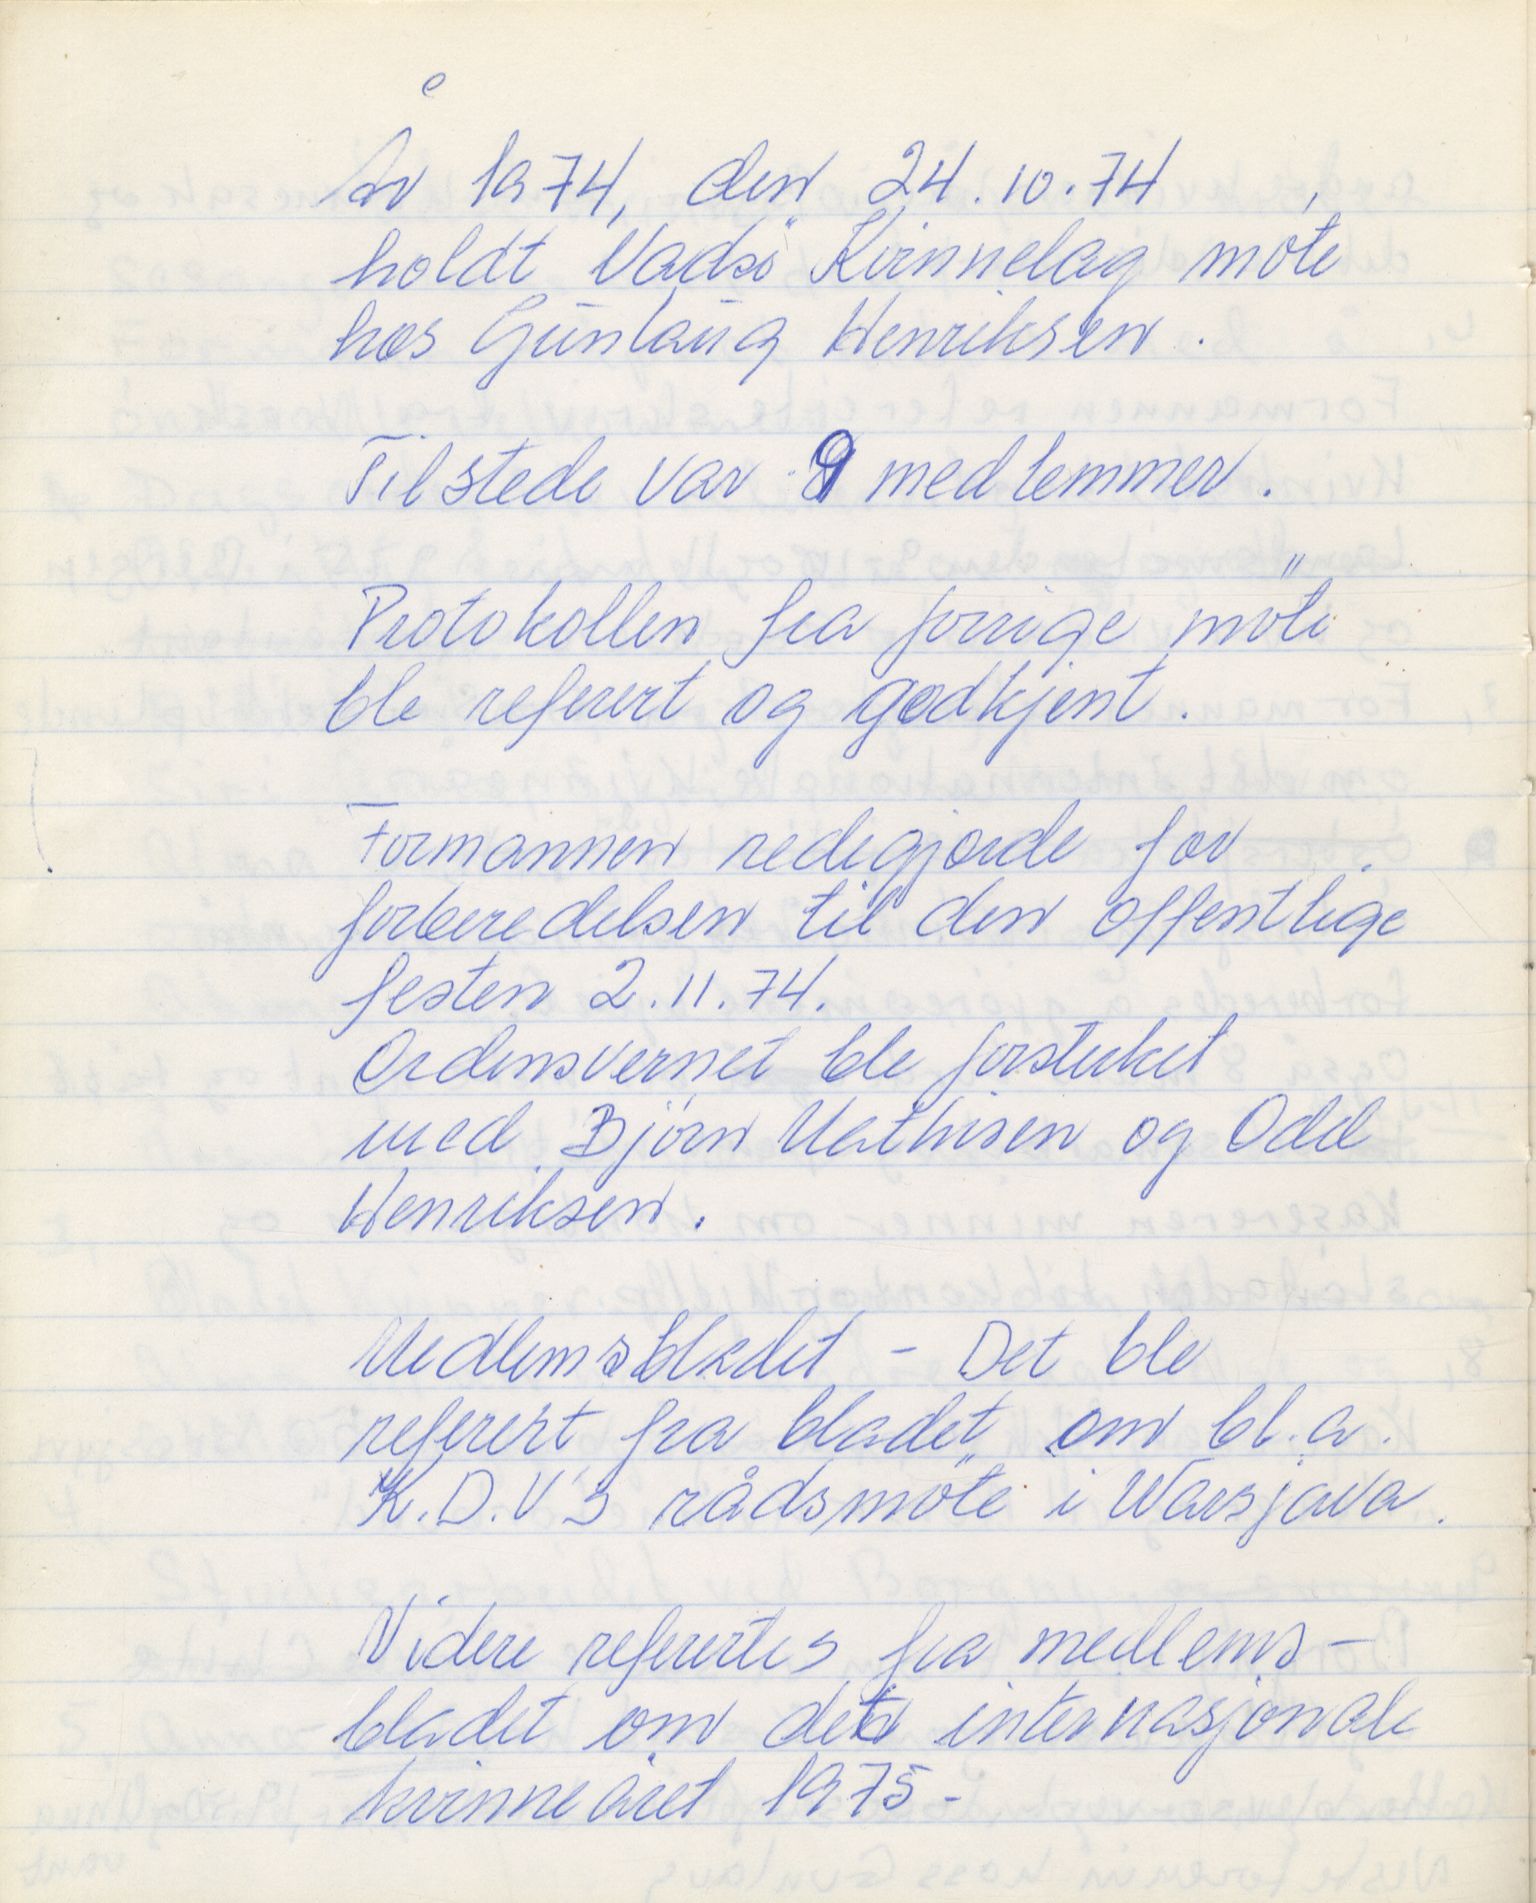 År 1974, den 24.10.74
holdt Vadsö Kvinnelag möte
hos Gunlaug Henriksen.
Tilstede var 9 medlemmer.
Protokollen fra forrige möte
ble referert og godkjent.
Formannen redegjorde for
forberedelsen til den offentlige
festen 2.11.74.
Ordensvernet ble forsterket
med Björn Mathisen og Odd
Henriksen.
Medlemsbladet - Det ble
referert fra bladet om bl.a.
K.D.V's rådsmöte i Warsjava.
Videre refertes fra medlems-
bladet om det internasjonale
kvinneåret 1975-